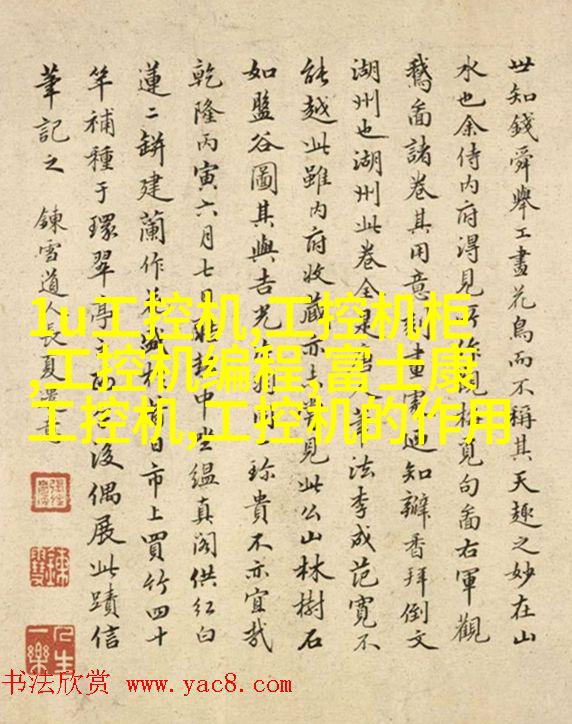 世知錢舜舉工畫花鳥而不稱其天趣之妙在山
水也余侍内府得見
鵝啚諸卷其用意
湖州也湖州此卷全是 筆法李成范寬不
能越此雖内府收藏亦 見此公山林樹石
如盤谷圖其與吉光 珎貴不亦宜哉
乾隆丙寅六月七日 中坐緼真阁供红白
蓮二缾建蘭作 日市上買竹四十
竿補種于環翠亭 後偶展此蹟信
筆記之 鍊雪道人長夏
1u工控机,工控机柜
,工控机编程,富士康
工控机,工控机的作用
人生一樂
书法欣赏 www.yac8.com